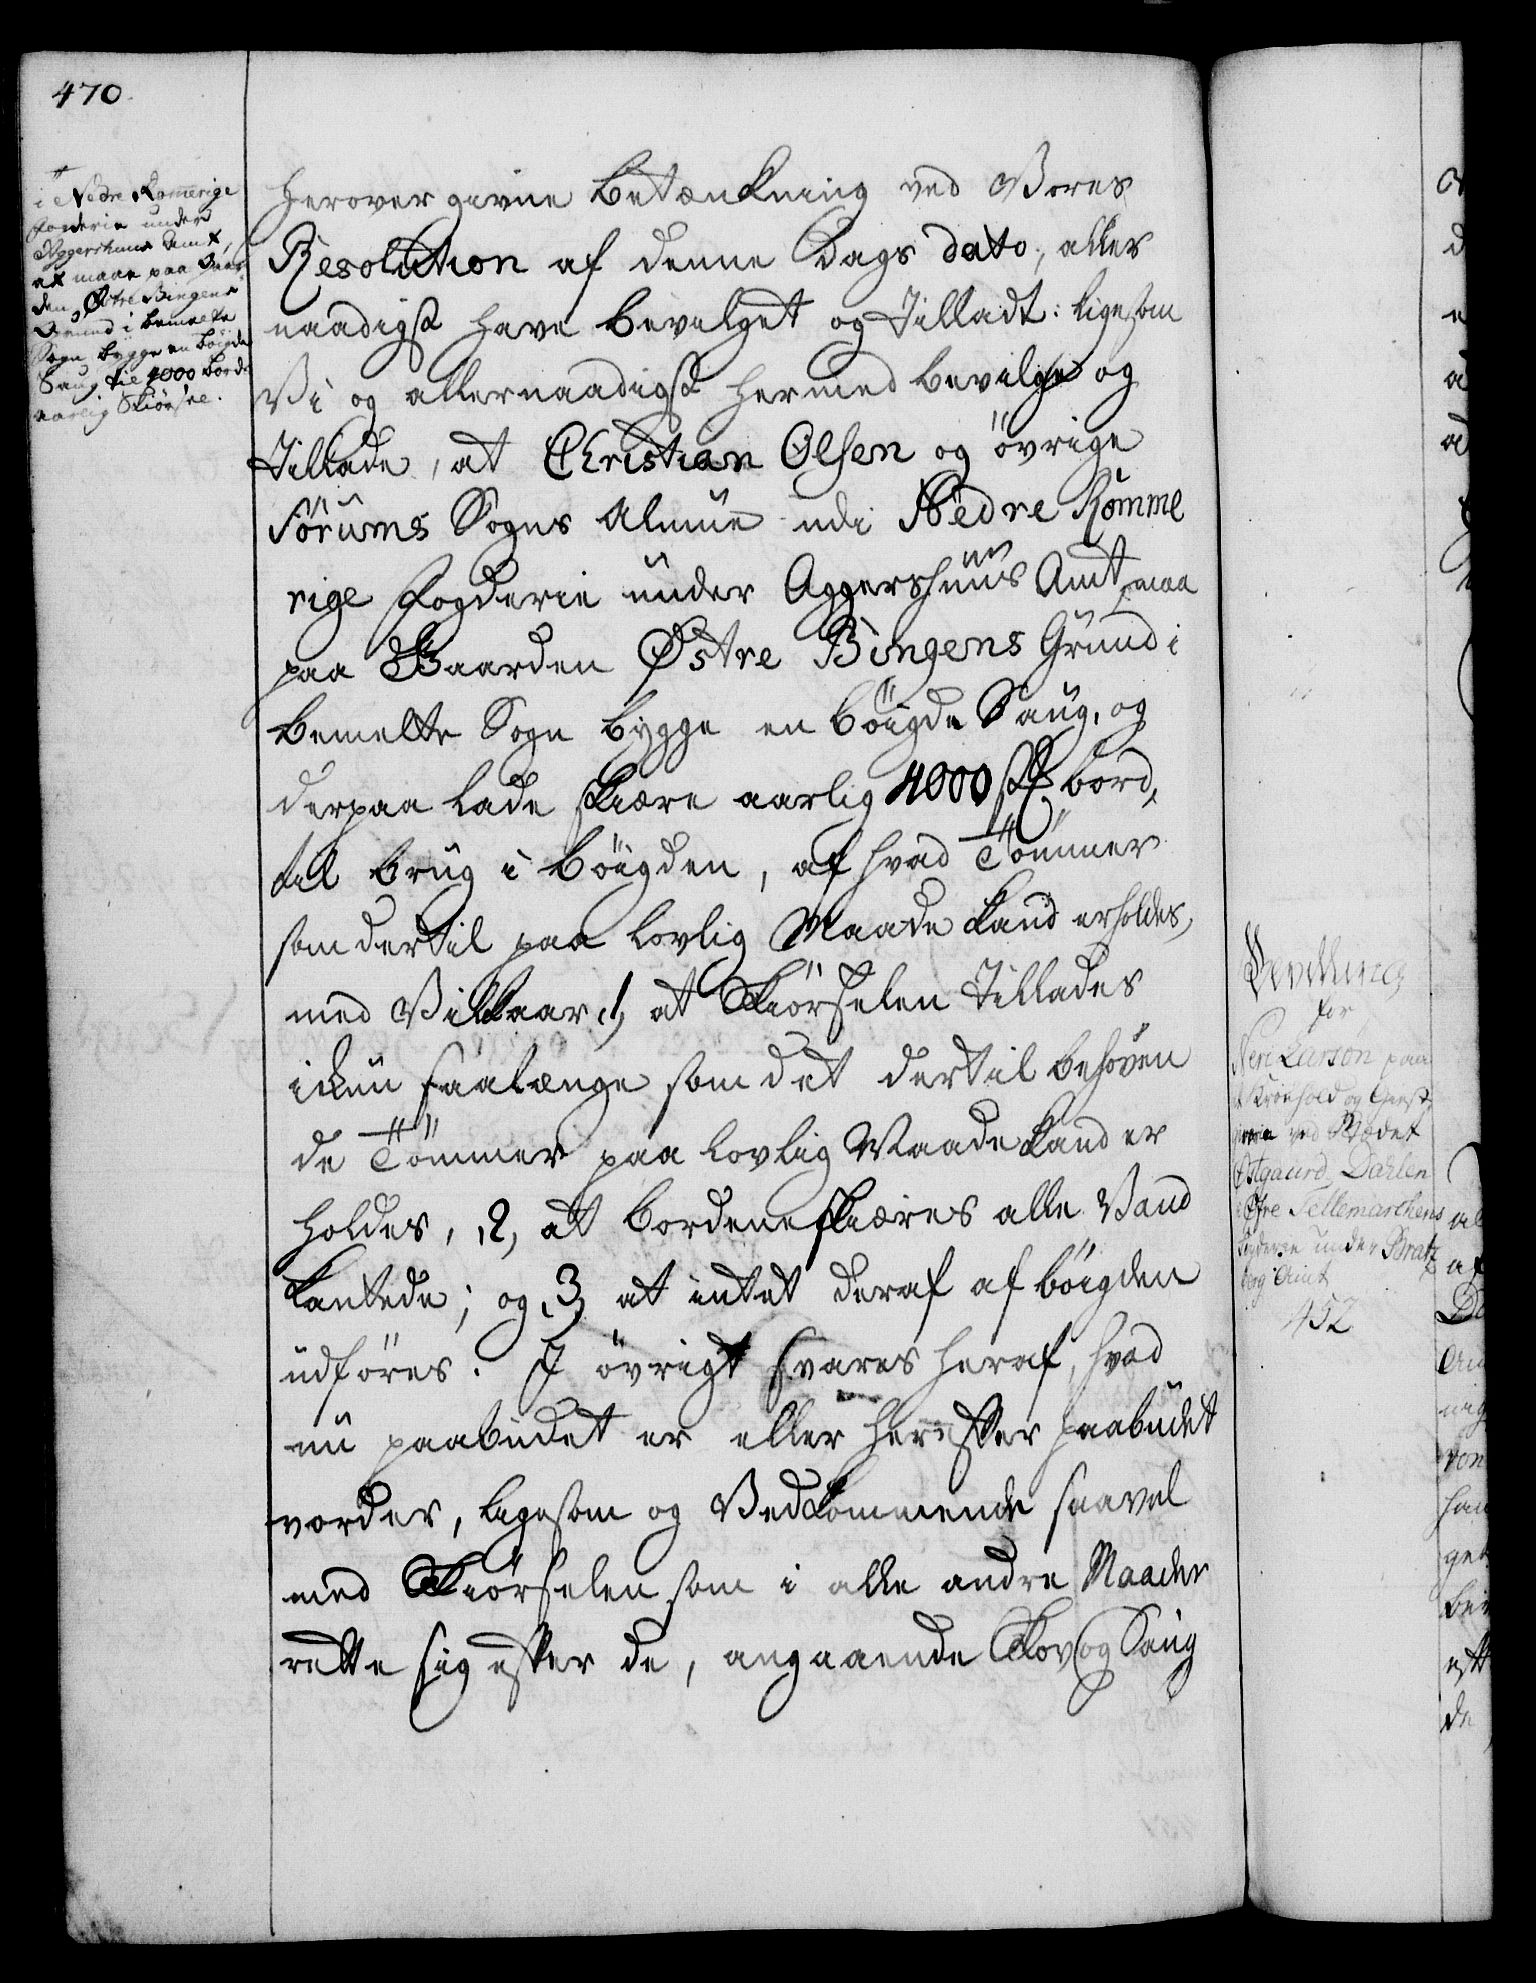 470.
i Nedre Romerige
Fogderie under
Aggershuus Amt,
at maae paa Gaar-
den Østre Bingens
Grund i bemelte
Sogn bygge en bøigde
Saug til 4000 bord
aarlig Skiørsel.
herover givne betænkning ved Vores
Resolution af denne Dags dato, aller
naadigst have bevilget og Tilladt: ligesom
Vi og allernaadigst hermed bevilge og
Tillade, at Christian Olsen og øvrige
Sørums Sogns Almue udi Nedre Romme
rige Fogderie under Aggershuus Amt, maa
paa Gaarden Østre Bingens Grund i
bemelte Sogn bygge en bøigde Saug, og
derpaa lade skiære aarlig 4000 st bord,
til brug i bøigden, af hvad Tømmer
som dertil paa lovlig Maade kand erholdes,
med Vilkaar 1, at Skiørselen Tillades
ickun saalænge som det dertil behøven
de Tømmer paa lovlig Maade kand er
holdes, 2, at bordene skiæres alle Vand
kantede; og 3, at intet deraf af bøigden
udføres. I øvrigt svares heraf, hvad
nu paabudet er eller herefter paabudet
vorder, ligesom og Vedkommende saavel
med Skiørselen som i alle andre Maader
rette sig efter de, angaaende Skov og Saug
Bevilling
for
Neri Larson paa
et Kroehold og Giest-
giverie ved
Østgaard Dahlen
i Øfre Tellemarchens
Fogderie under Bratz
berg Amt
452